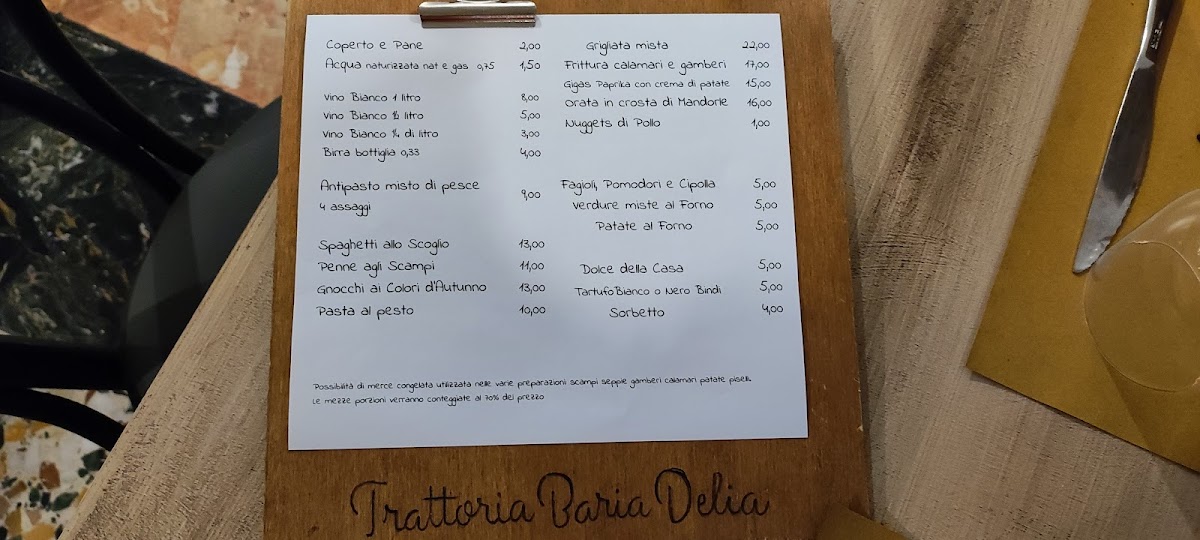 Coperto e Pane 2,00
Acqua naturizzata nat e gas 0,75 1,50
Vino Bianco 1 litro 8,00
Vino Bianco ½ litro 5,00
Vino Bianco ¼ di litro 3,00
Birra bottiglia 0,33 4,00
Antipasto misto di pesce
4 assaggi 9,00
Spaghetti allo Scoglio 13,00
Penne agli Scampi 11,00
Gnocchi ai Colori d'Autunno 13,00
Pasta al pesto 10,00
Grigliata mista 22,00
Frittura calamari e gamberi 17,00
Gigas Paprika con crema di patate 15,00
Orata in crosta di Mandorle 16,00
Nuggets di Pollo 1,00
Fagioli, Pomodori e Cipolla 5,00
Verdure miste al Forno 5,00
Patate al Forno 5,00
Dolce della Casa 5,00
Tartufo Bianco o Nero Bindi 5,00
Sorbetto 4,00
Possibilità di merce congelata utilizzata nelle varie preparazioni scampi seppie gamberi calamari patate piselli.
Le mezze porzioni verranno conteggiate al 70% del prezzo
Trattoria Baria Delia